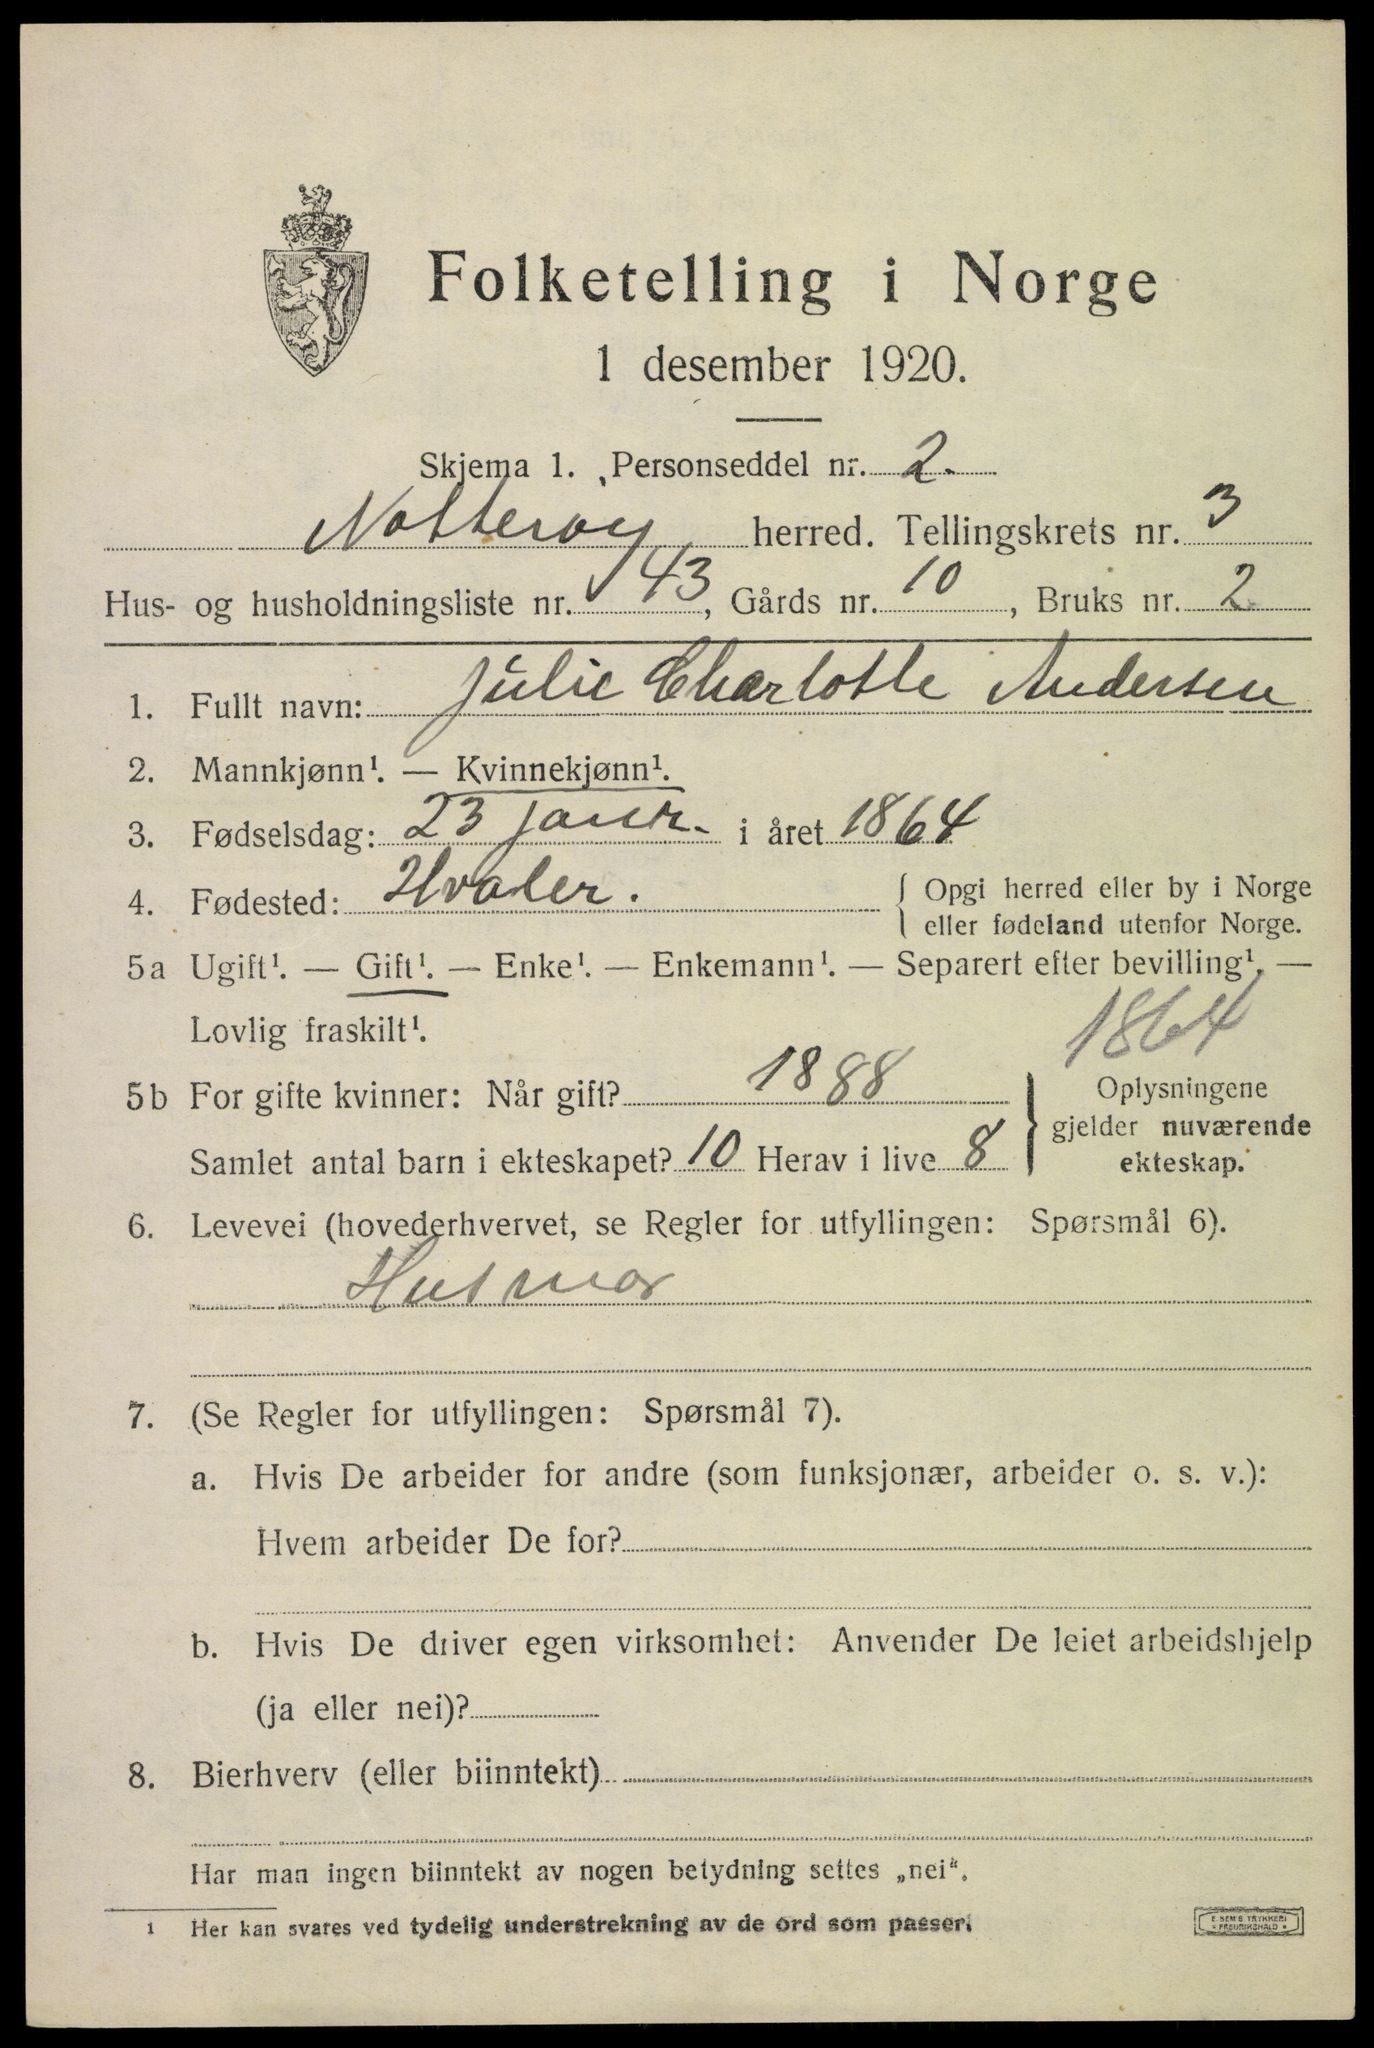 Folketelling i Norge
1 desember 1920.
Skjema 1. Personseddel nr. 2.
Nøtterøy herred. Tellingskrets nr. 3
Hus- og husholdningsliste nr. 43, Gårds nr. 10, Bruks nr. 2
1. Fullt navn: Julie Charlotte Andersen
2. Mannkjønn¹. — Kvinnekjønn¹.
3. Fødselsdag: 23 janr. i året 1864
4. Fødested: Hvaler. { Opgi herred eller by i Norge
eller fødeland utenfor Norge.
5a Ugift¹. — Gift¹. — Enke¹. — Enkemann¹. — Separert efter bevilling¹. —
Lovlig fraskilt¹.
1864
5b For gifte kvinner: Når gift? 1888
Samlet antal barn i ekteskapet? 10 Herav i live 8
} Oplysningene
gjelder nuværende
ekteskap.
6. Levevei (hovederhvervet, se Regler for utfyllingen: Spørsmål 6).
Husmor
7. (Se Regler for utfyllingen: Spørsmål 7).
a. Hvis De arbeider for andre (som funksjonær, arbeider o. s. v.):
Hvem arbeider De for?
b. Hvis De driver egen virksomhet: Anvender De leiet arbeidshjelp
(ja eller nei)?
8. Bierhverv (eller biinntekt)
Har man ingen biinntekt av nogen betydning settes „nei“.
¹ Her kan svares ved tydelig understrekning av de ord som passer.
E. SEM'S TRYKKERI
* FREDRIKSHALD *